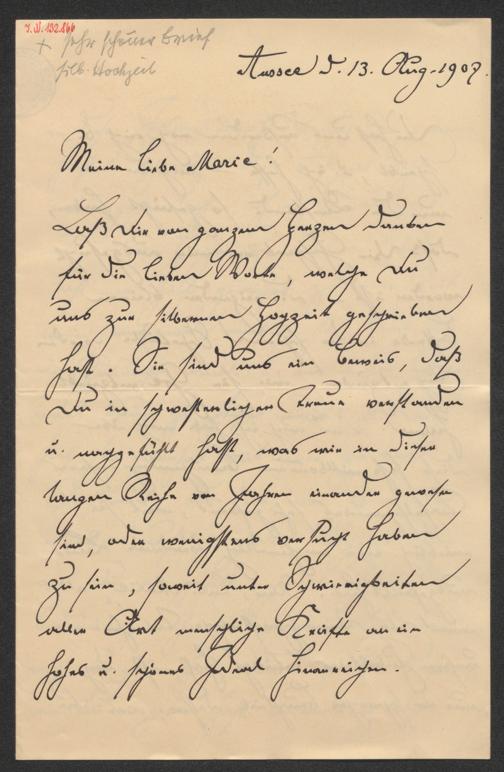 I. N. 192.166
+ sehr schöner Brief
silb. Hochzeit
Aussee d. 13. Aug. 1907.
Meine liebe Marie!
Laß dir von ganzem Herzen danken
für die lieben Worte, welche du
uns zur silbernen Hochzeit geschrieben
hast. Sie sind uns ein Beweis, daß
Du in schwesterlicher Treue verstanden
u. nachgefühlt hast, was wir in dieser
langen Reihe von Jahren einander gewesen
sind, oder wenigstens versucht haben
zu sein, soweit unter Schwierigkeiten
aller Art menschliche Kräfte an ein
hohes u. schönes Ideal hinanreichen.